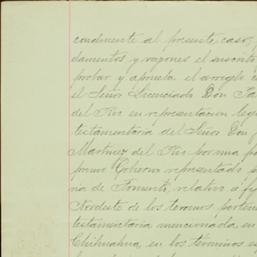 condimente al presente caso,
damentos y razones el suscrito
probar y aprueba el arreglo c
el Señor Licenciado Don
del Rio en representacion leg
testamentaria del Señor Don
Martinez del Rio por una p
premo Gobierno representado
ria de Fomento, relativo a fij
Nordeste de los terrenos perten
testamentaria mencionada en
Chihuahua en los terminos e